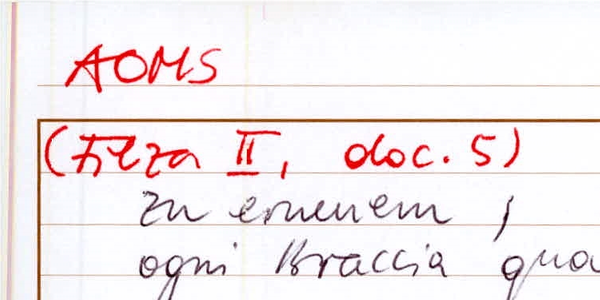 AOMS
(Filza II, doc. 5)
zu erneuern ;
ogni Braccia qua